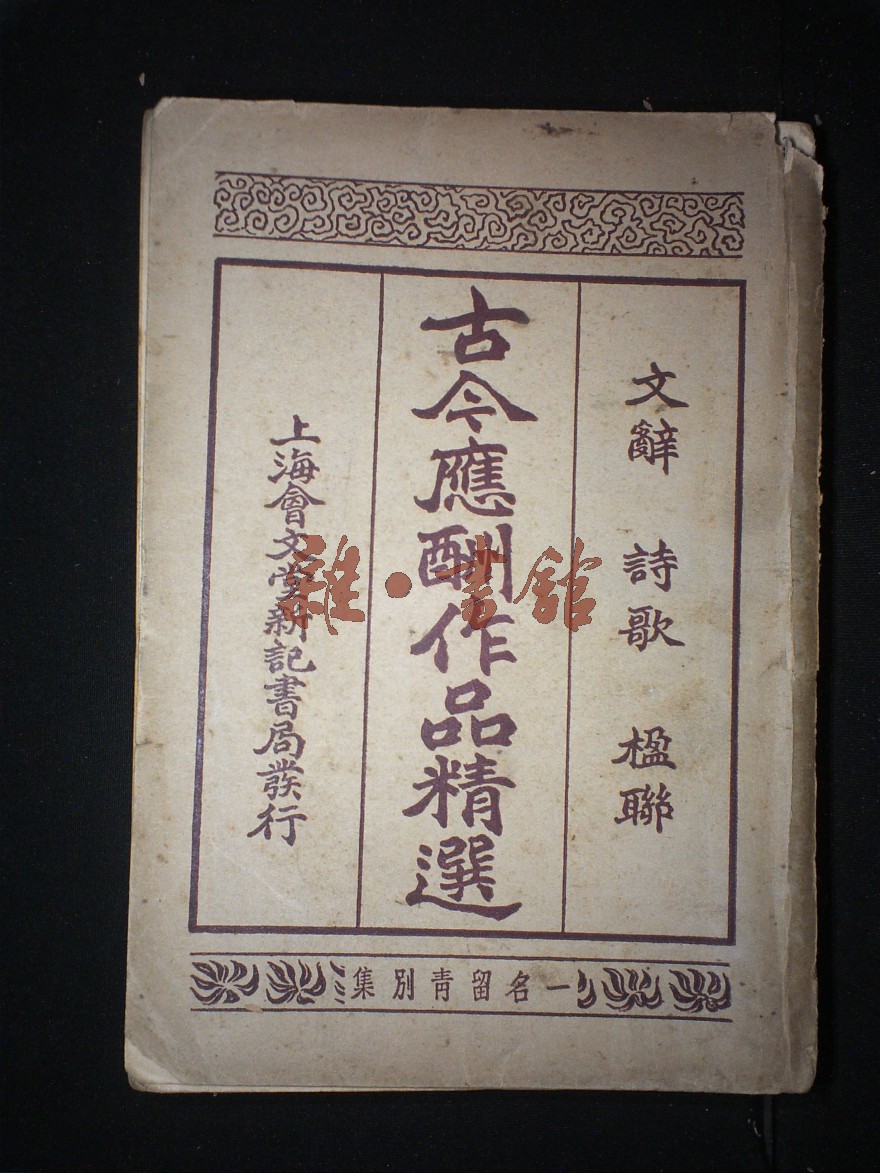 文辭 詩歌 楹聯
古今應酬作品精選
上海會文堂新記書局發行
一名留青別集
雜·書館